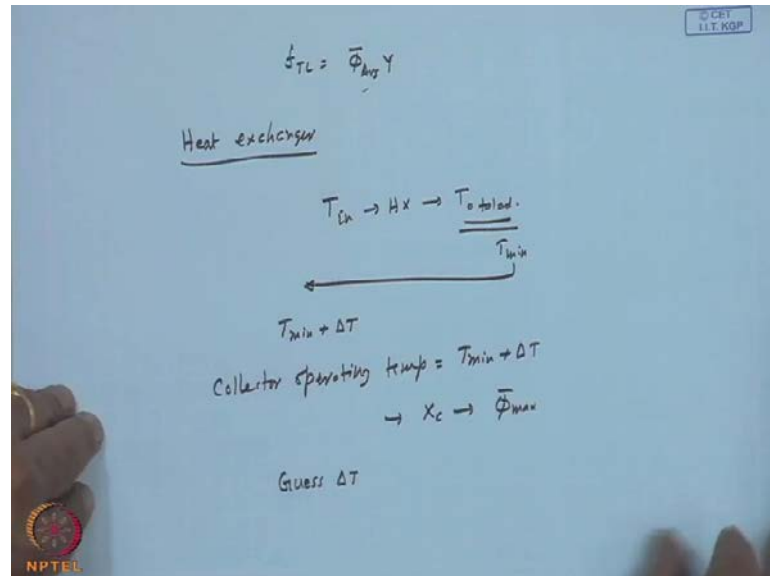 © CET
I.I.T. KGP
f_TL = Φ̄_Avg Y
Heat exchanger
T_in → HX → T_o to load.
T_min
T_min + ΔT
Collector operating temp = T_min + ΔT
→ X_c → Φ̄_max
Guess ΔT
NPTEL